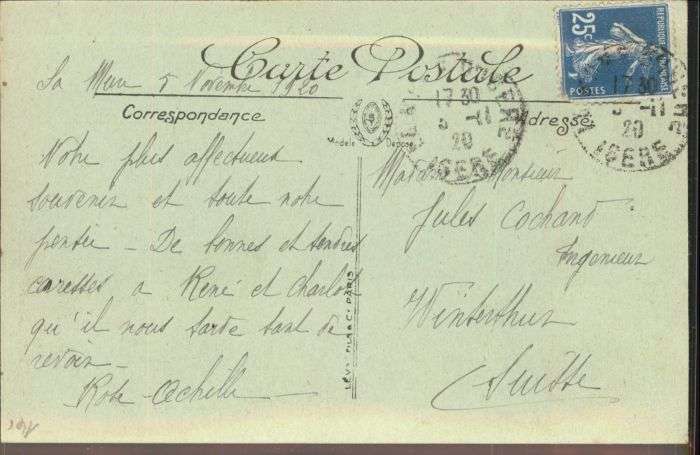 Carte Postale
La Mure 5 Novembre 1920
Correspondance
Adresse
Modèle Déposé
25c
REPUBLIQUE FRANÇAISE
POSTES
17 30
5 - 11
20
ISERE
17 30
5 - 11
20
ISERE
Notre plus affectueux
souvenir et toute notre
pensée - De bonnes et tendres
caresses a René et Charlot
qu'il nous tarde tant de
revoir -
Rose Achille -
Madame Monsieur
Jules Cochand
Ingenieur
Winterthur
Suisse
LÉVY FILS & Cie PARIS